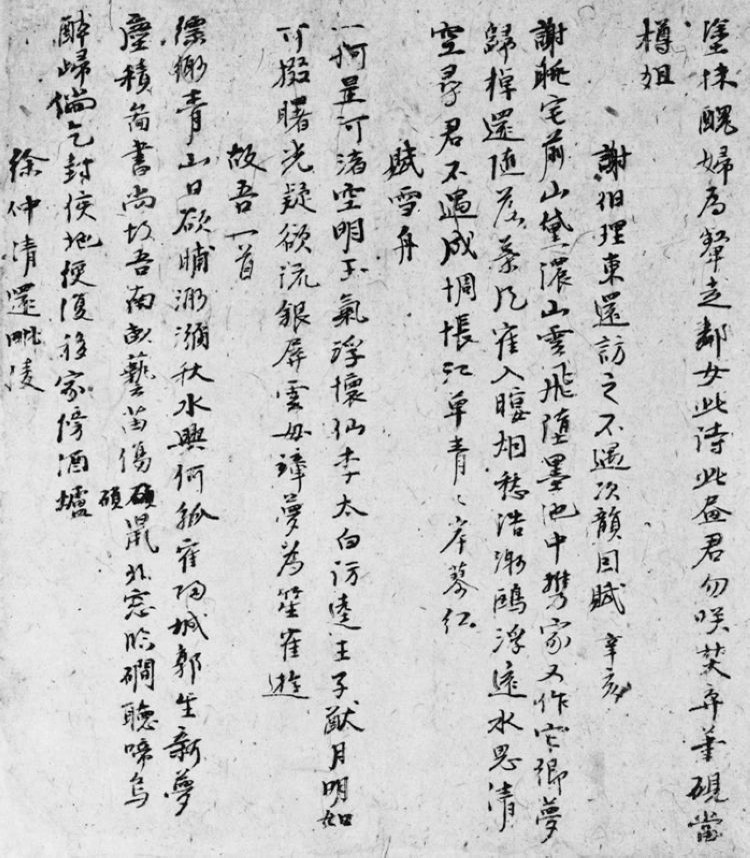 塗抹醜婦為顰走鄰女此詩此畫君勿咲焚弃筆硯當
樽俎
謝伯理東還訪之不遇次韻因賦 辛亥
謝朓宅前山黛濃山雲飛墮墨池中携家又作它鄉夢
歸棹還随落葉風隺入暝烟愁浩渺鷗浮遠水思清
空尋君不遇成惆悵江草青〻岸蓼紅
賦雪舟
一舸河渚空明玉氣浮懷仙李太白訪逵王子猷月明如
可掇曙光疑欲流銀屏雲母障夢為笙隺遊
故吾一首
縹緲青山日欲晡瀰瀰秋水興何孤隺歸城郭生新夢
塵積啚書尚故吾南畝蓺苗傷碩鼠北窓臨磵聽啼烏
碩
醉歸倘乞封侯地便復移家傍酒壚
徐仲清還毗陵